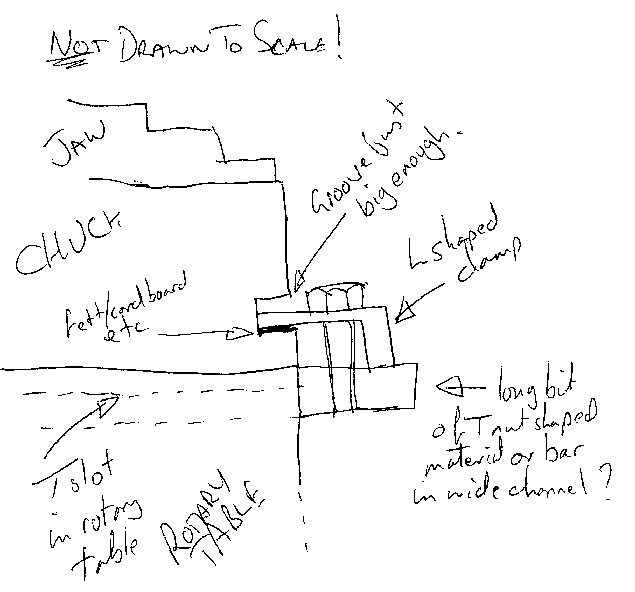 NOT DRAWN TO SCALE!
JAW
Groove just
big enough.
CHUCK
L shaped
clamp
felt/cardboard
etc
long bit
of T nut shaped
material or bar
in wide channel?
T slot
in rotary
table
ROTARY
TABLE